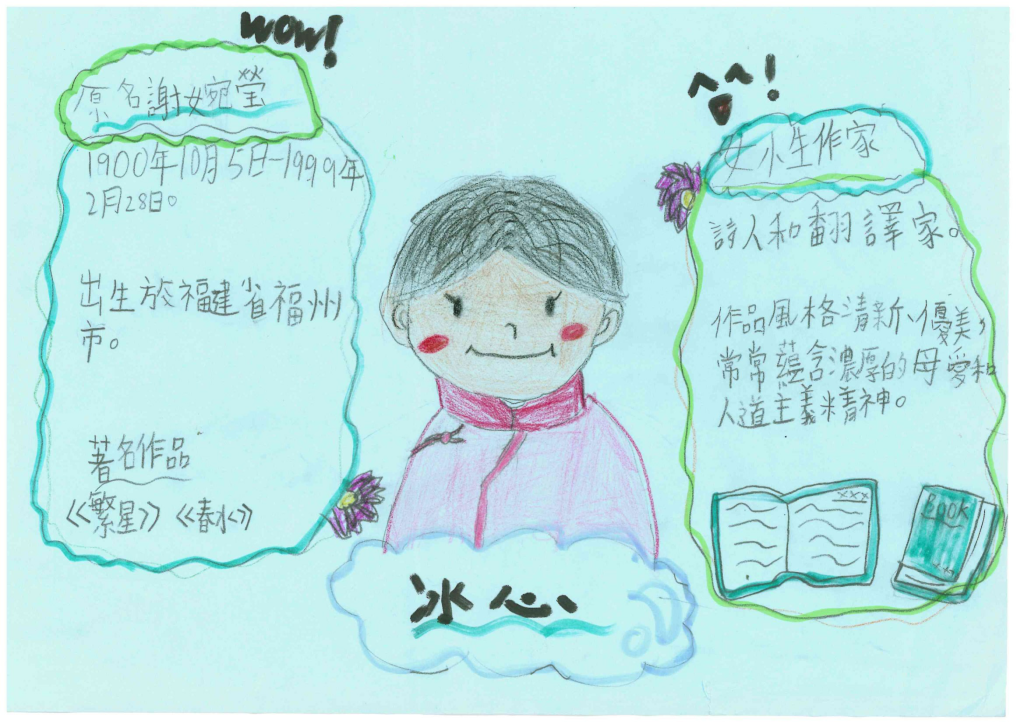 wow!
原名謝婉瑩
1900年10月5日-1999年
2月28日。
出生於福建省福州
市。
著名作品
《繁星》《春水》
^^!
女小生作家
詩人和翻譯家。
作品風格清新、優美，
常常蘊含濃厚的母愛和
人道主義精神。
xxx
BOOK
冰心